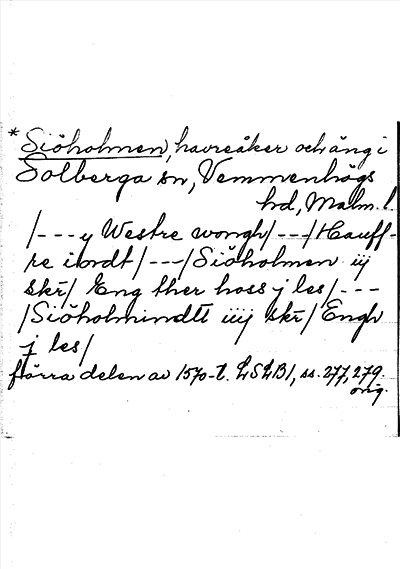 * Siöholmen, havreåker och äng i
Solberga sn, Vemmenhögs
hd, Malm. l.
/--- y Westre wongh/---/Hauff-
re iordt/---/Siöholmen iij
skr/ Eng ther hoss j les/---
/Siöholmindtt iiij skr/ Engh
j les/
förra delen av 1570-t. LSLB1, ss. 277, 279.
orig.